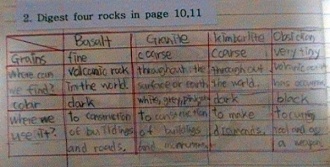 2. Digest four rocks in page 10,11
Basalt Granite kimberlite Obsidian
Grains fine coarse coarse very tiny
where can volcanic rock throughout the throughout volcanic
we find? in the world. surface of earth the world.
color dark white, grey, dark black
where we to construction to construction to make to
use it? of buildings of buildings diamonds. tool and
and roads. and a weapon